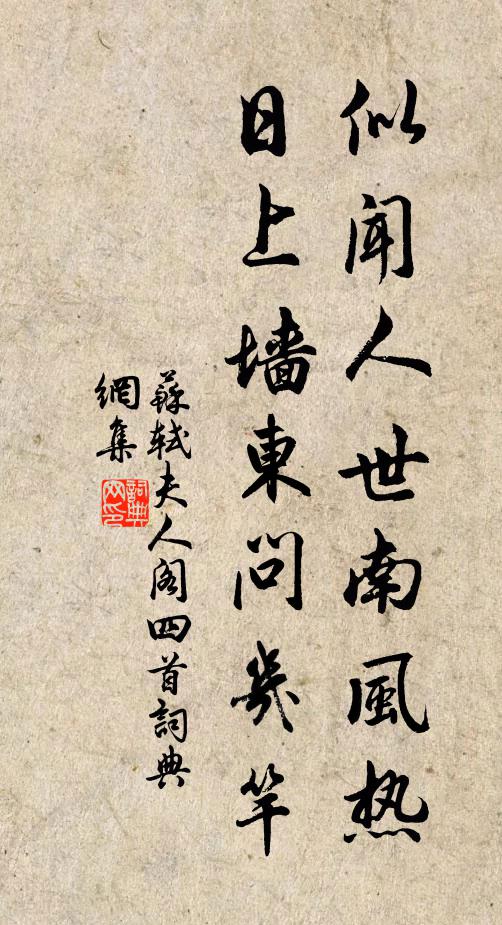 似闻人世南風热
日上墙東問幾竿
蘇軾夫人阁四首詞典
網集
詞典
网印